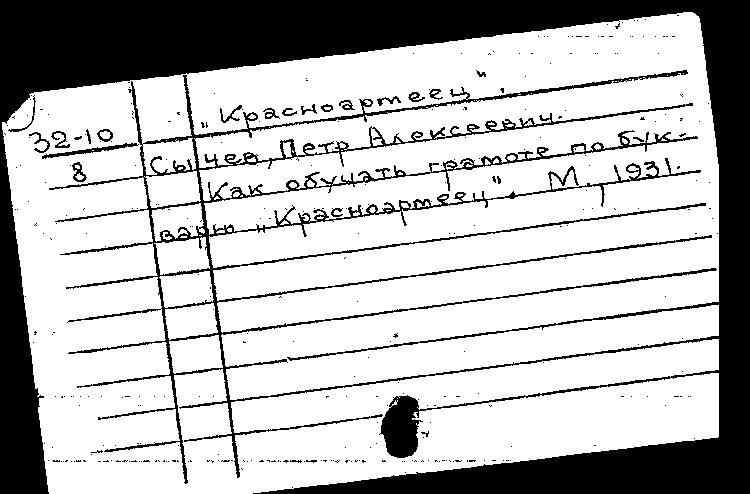 „Красноармеец".
32-10
8
Сычев, Петр Алексеевич.
Как обучать грамоте по бук-
варю „Красноармеец". М., 1931.